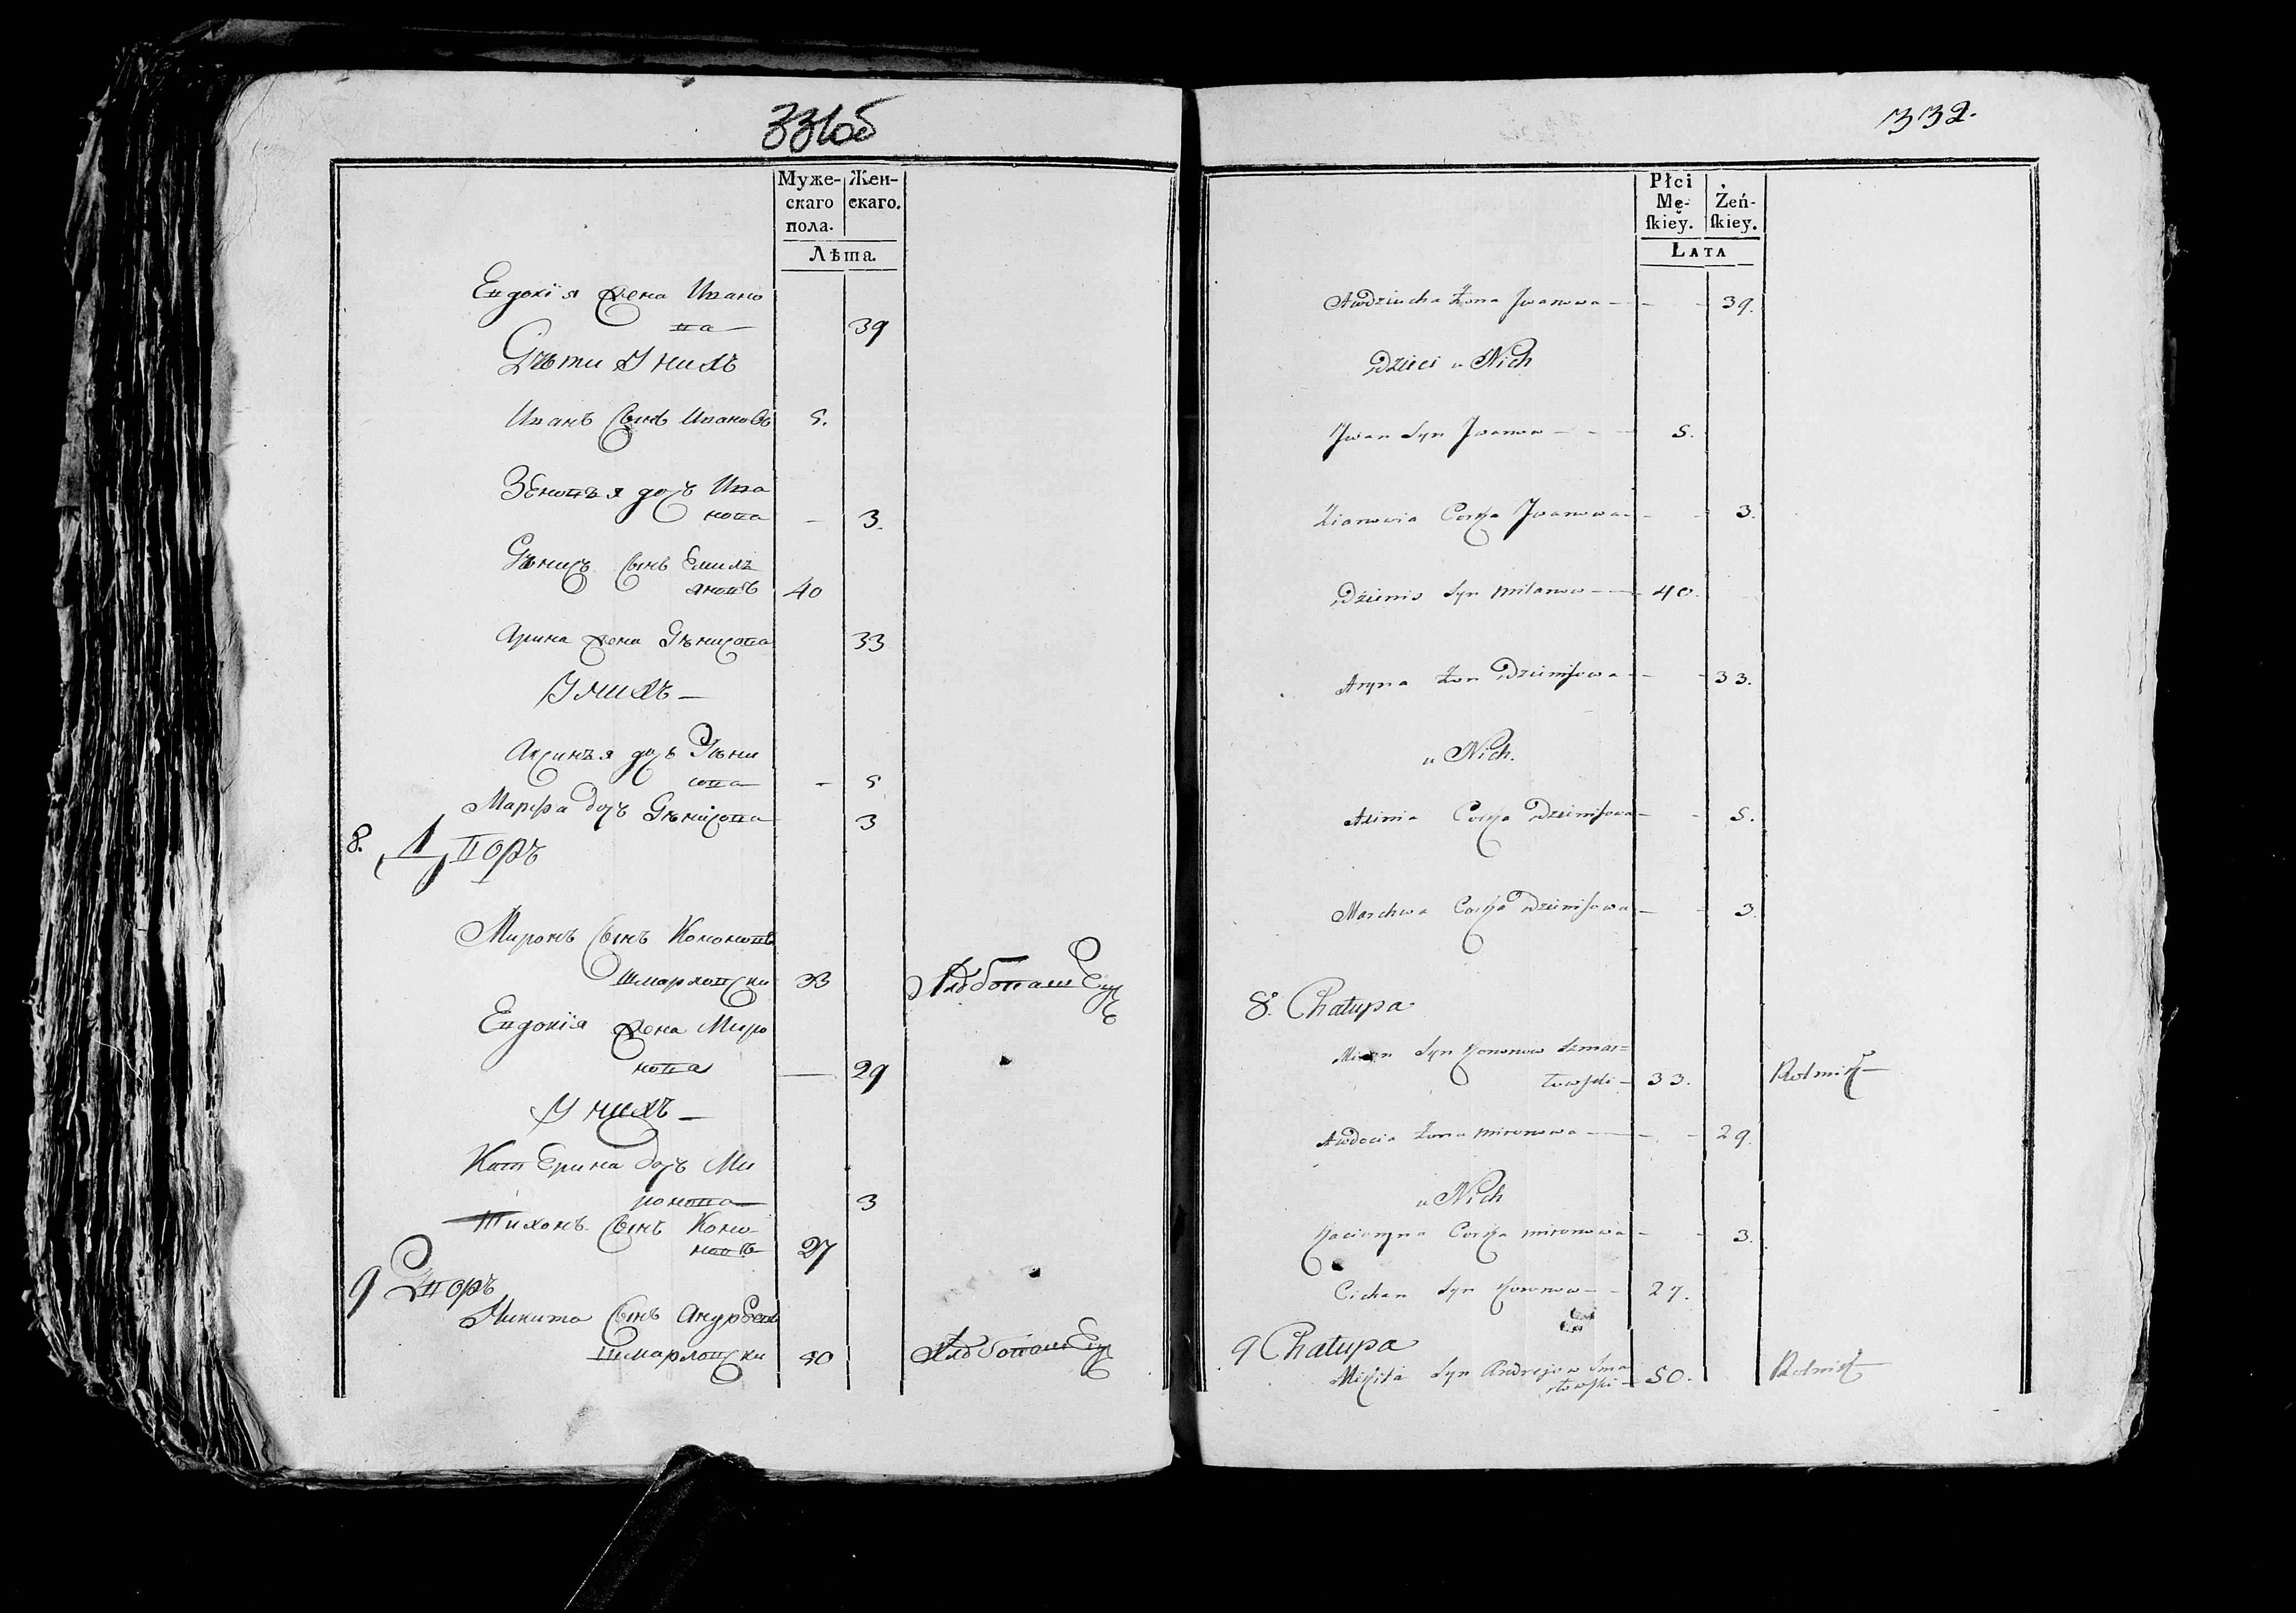 331об
Муже- Жен-
скаго скаго.
пола.
Лѣта.
Евдокія жена Ивано
ва 39
Дѣти У нихъ
Иванъ сынъ Ивановъ 5.
Зеновья дочь Ива
нова - 3.
Дѣнисъ сынъ Емиль
яновъ 40
Арина жена Дѣнисова 33
У нихъ —
Аксинья дочь Дѣни
сова - 5
Марфа дочь Дѣнисова 3
8. Дворъ
Миронъ сынъ Кононовъ
Шмарловски 33 Хлебопашецъ
Евдокія жена Миро
нова — 29
У нихъ —
Катерина дочь Ми
ронова 3
Тихонъ сынъ Коно
новъ 27
9 Дворъ
Никита сынъ Андрѣевъ
Шмарловски 50 Хлебопашец
332.
Płci
Mę- Żeń-
ſkiey. ſkiey.
LATA
Awdziucha Żona Jwanowa — - - 39.
Dzieci u Nich
Jwan Syn Jwanow — - - 5.
Zianowia Corka Jwanowa - - - 3.
Dzienis Syn Milanow — 40.
Aryna Żon Dzienisowa - - - 33.
u Nich.
Axinia Corka Dzienisowa - - 5.
Marchwa Corka Dzienisowa - - 3.
8. Chałupa
Miron Syn Kononow Szmar=
łowski - 33. Rolnik —
Awdocia Żona Mironowa — - - 29.
u Nich
Kacieryna Corka Mironowa - - 3.
Cichan Syn Kononow - - 27.
9 Chałupa
Mikita Syn Andrejow Szma
rłowski - 50. Rolnik —